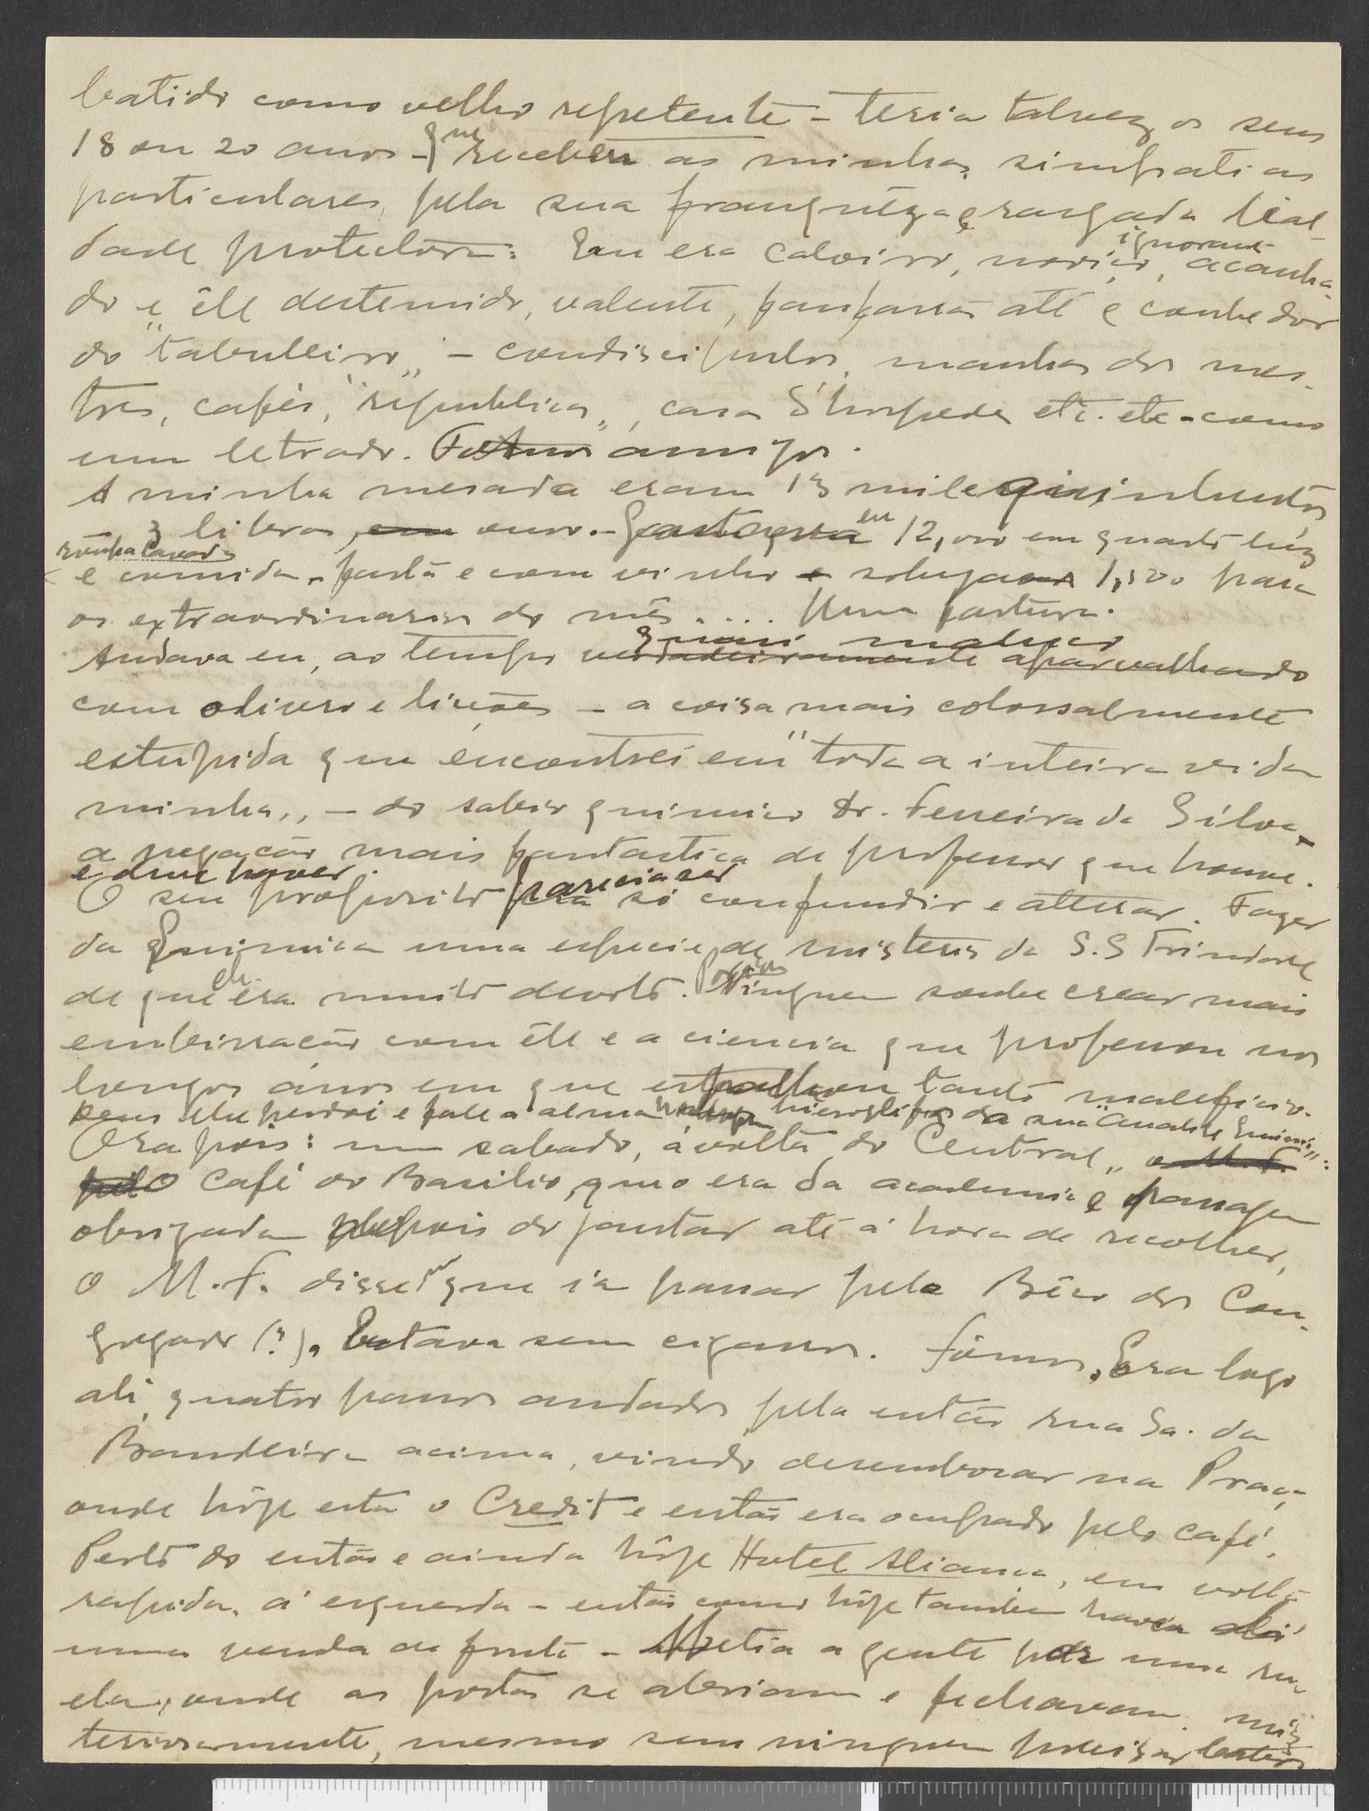 batido como velho repetente - teria talvez os seus
18 ou 20 anos - que recebeu as minhas simpatias
particulares, pela sua franquêza e rasgada leal-
dade protectora: Eu era caloiro, noviço, ignorante, acanha-
do e êle destemido, valente, fanfarrão até e conhedor
do "taboleiro" - condiscipulos, manhas dos mes-
tres, cafés, "republicas", casas d'hospedes etc. etc - como
um letrado. Fomos amigos.
A minha mesada eram 13 mil e quinhentos,
- 3 libras, em ouro. - Gastava eu 12,000 em quarto luz
roupa lavada
e comida, farta e com vinho e sobejavam 1,500 para
os extraordinarios do mês.... Uma fortuna.
Andava eu, ao tempo verdadeiramente aparvalhado
quasi maluco
com o livro e lições - a coisa mais colossalmente
estupida que encontrei em "toda a inteira vida
minha" - do sabio quimico Dr. Ferreira da Silva,
a negação mais fantastica de professor que houve.
e deve haver.
O seu proposito parecia ser só confundir e atterar. Fazer
da Quimica uma especie de misterio da S.S Trindade
de que êle era muito devoto. Ninguem soube crear mais
embirração com êle e a ciencia que professou nos
longos ânos em que espalhou tanto maleficio.
Deus lhe perdoi e fale a alma hieroglifos da sua "Analise Quimica":
Ora pois: um sabado, á volta do "Central"
o Café do Basilio, que o era da academia e passagem
obrigada depois do jantar até á hora de recolher,
o M. F. disse-me que ia passar pelo Bêco dos Con-
gregados (?). Estava sem cigarros. Fômos. Era logo
ali, quatro passos andados, pela então rua Sá da
Bandeira acima, vindo desembocar na Praça,
onde hôje está o Credit e então era ocupado pelo café.
Perto do então e ainda hôje Hotel Aliança, em volta
rapida, á esquerda - então como hôje tambem havia ali
uma venda de fruta - Metia a gente por uma ru-
ela, onde as portas se abriam e fechavam. mis-
teriosamente, mesmo sem ninguem precisar bater